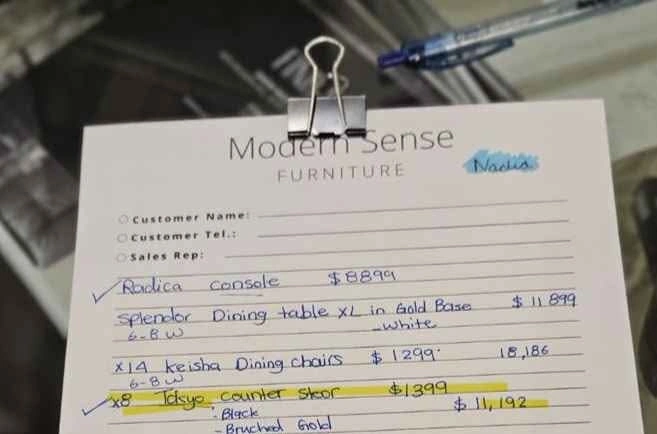 Modern Sense
FURNITURE
Nadia
Customer Name:
Customer Tel.:
Sales Rep:
Radica console $8899
Splendor Dining table XL in Gold Base $11 899
6-8 W - White
x14 Keisha Dining chairs $1299 18,186
6-8 W
x8 Tokyo counter stoor $1399
- Black $11,192
- Bruched Gold